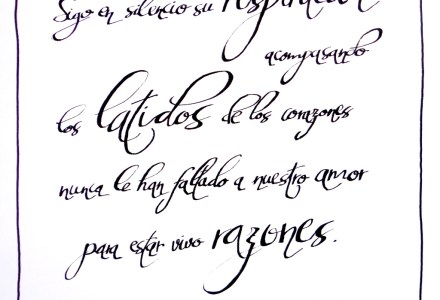 Sigo en silencio su respiración
acompasando
los latidos de los corazones
nunca le han fallado a nuestro amor
para estar vivo razones.